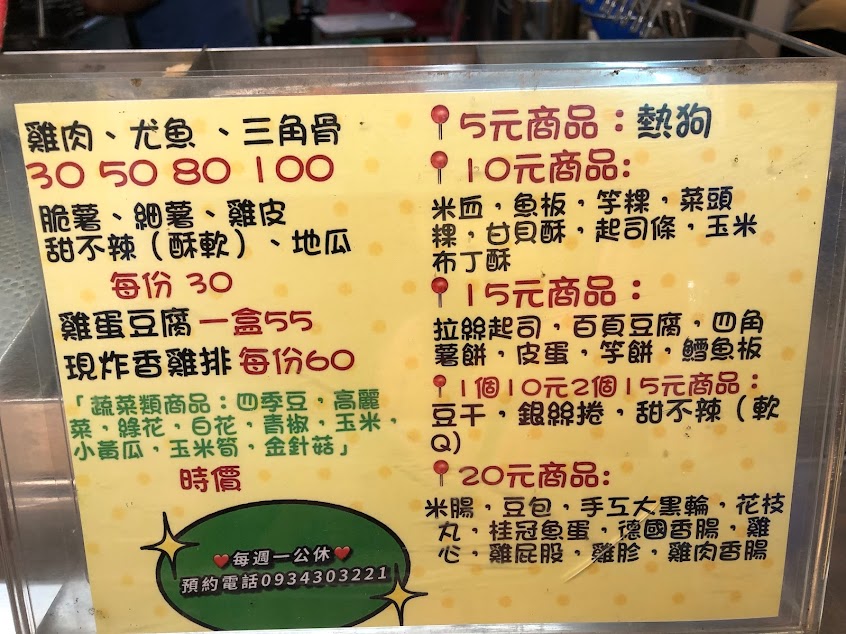 雞肉、尤魚、三角骨
30 50 80 100
脆薯、細薯、雞皮
甜不辣（酥軟）、地瓜
每份 30
雞蛋豆腐一盒55
現炸香雞排每份60
「蔬菜類商品：四季豆，高麗
菜，綠花，白花，青椒，玉米，
小黃瓜，玉米筍，金針菇」
時價
每週一公休
預約電話0934303221
5元商品：熱狗
10元商品:
米血，魚板，芋粿，菜頭
粿，甘貝酥，起司條，玉米
布丁酥
15元商品：
拉絲起司，百頁豆腐，四角
薯餅，皮蛋，芋餅，鱈魚板
1個10元2個15元商品：
豆干，銀絲捲，甜不辣（軟
Q）
20元商品:
米腸，豆包，手工大黑輪，花枝
丸，桂冠魚蛋，德國香腸，雞
心，雞屁股，雞胗，雞肉香腸